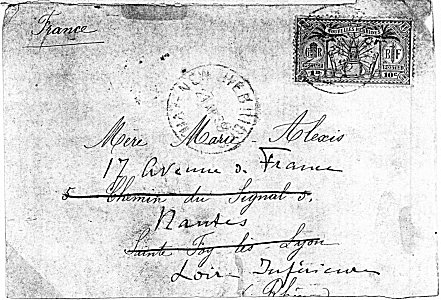 France
NOUVELLES HEBRIDES
RF
10c
VILA - NEW HEBRIDES
Mère Marie Alexis
17 Avenue de France
5 Chemin du Signal 5.
Nantes
Sainte Foy lès Lyon
Loire Inférieure
(Rhône